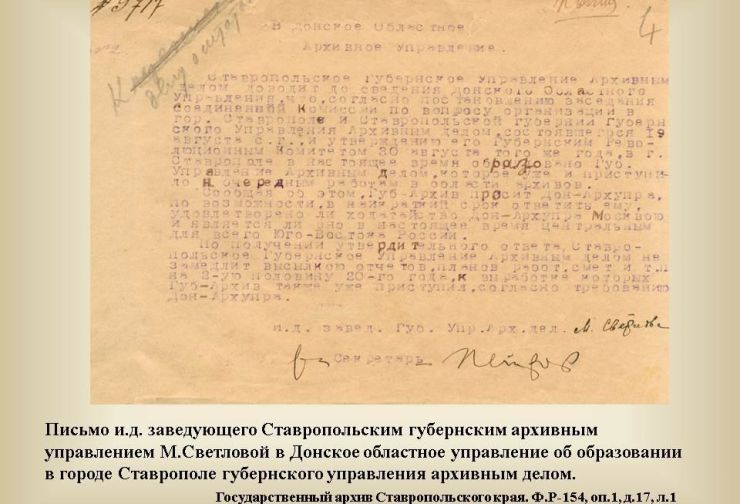 В Донское Областное
Архивное Управление.
4
Ставропольское Губернское Управление Архивным
делом доводит до сведения Донского Областного
Управления, что, согласно постановлению заседания
соединенной Комиссии по вопросу организации в
гор. Ставрополе и Ставропольской Губернии Губерн
ского Управления Архивным делом, состоявшегося 19
августа с.г., и утверждению его Губернским Рево-
люционным Комитетом 30 августа того же года, в г.
Ставрополе в настоящее время образовано Губ.
Управление Архивным делом, которое уже и приступи-
ло к очередным работам в области архивов.
Сообщая об этом, Губ-Архив просит Дон-Архупра,
по возможности, в наикратчий срок ответить ему,
удовлетворено ли ходатайство Дон-Архупра Москвою
и является ли оно в настоящее время центральным
для всего Юго-Востока России.
По получении утвердительного ответа, Ставро-
польское Губернское Управление Архивным делом не
замедлит высылкою отчетов, планов работ, смет и т.п.
на 2-ую половину 20-го года, к выработке которых
Губ-Архив также уже приступил, согласно требованию
Дон-Архупра.
и.д. завед. Губ. Упр. Арх. дел. М. Светлова
Секретарь
Письмо и.д. заведующего Ставропольским губернским архивным
управлением М.Светловой в Донское областное управление об образовании
в городе Ставрополе губернского управления архивным делом.
Государственный архив Ставропольского края. Ф.Р-154, оп.1, д.17, л.1